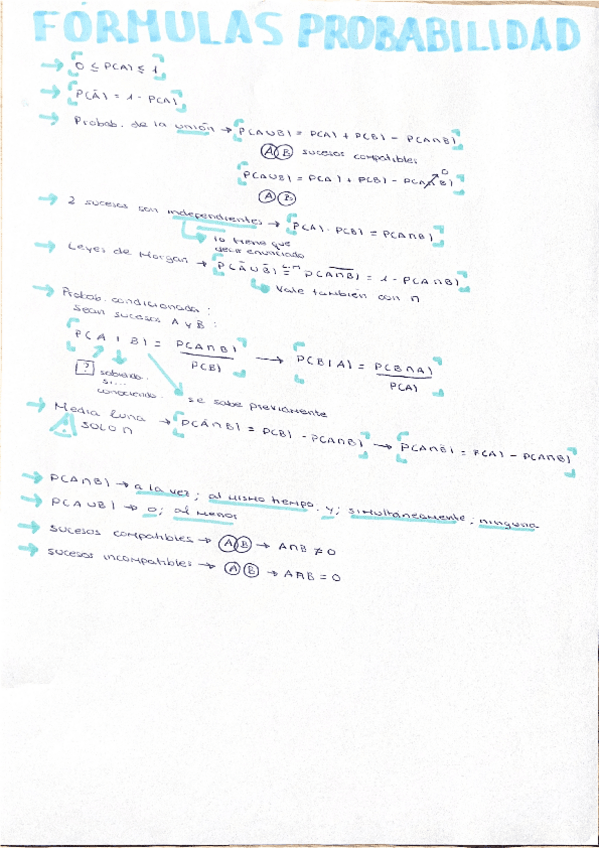 FÓRMULAS PROBABILIDAD
→ 0 ≤ P(A) ≤ 1
→ P(Ā) = 1 - P(A)
→ Probab. de la unión → P(A∪B) = P(A) + P(B) - P(A∩B)
A B sucesos compatibles
P(A∪B) = P(A) + P(B) - P(A∩B) 0
A B
→ 2 sucesos son independientes → P(A) · P(B) = P(A∩B)
lo tiene que
decir enunciado
→ Leyes de Morgan → P(Ā∪B̄) = P(A∩B)‾ = 1 - P(A∩B)
Vale también con ∩
→ Probab. condicionada:
sean sucesos A y B:
P(A | B) = P(A∩B) / P(B) → P(B|A) = P(B∩A) / P(A)
? sabiendo..
si....
conociendo..
se sabe previamente
→ Media luna → P(Ā∩B) = P(B) - P(A∩B) → P(A∩B̄) = P(A) - P(A∩B)
! SOLO ∩
→ P(A∩B) → a la vez; al mismo tiempo, y; simultáneamente; ninguna
→ P(A∪B) → o; al menos
→ sucesos compatibles → A B → A∩B ≠ 0
→ sucesos incompatibles → A B → A∩B = 0